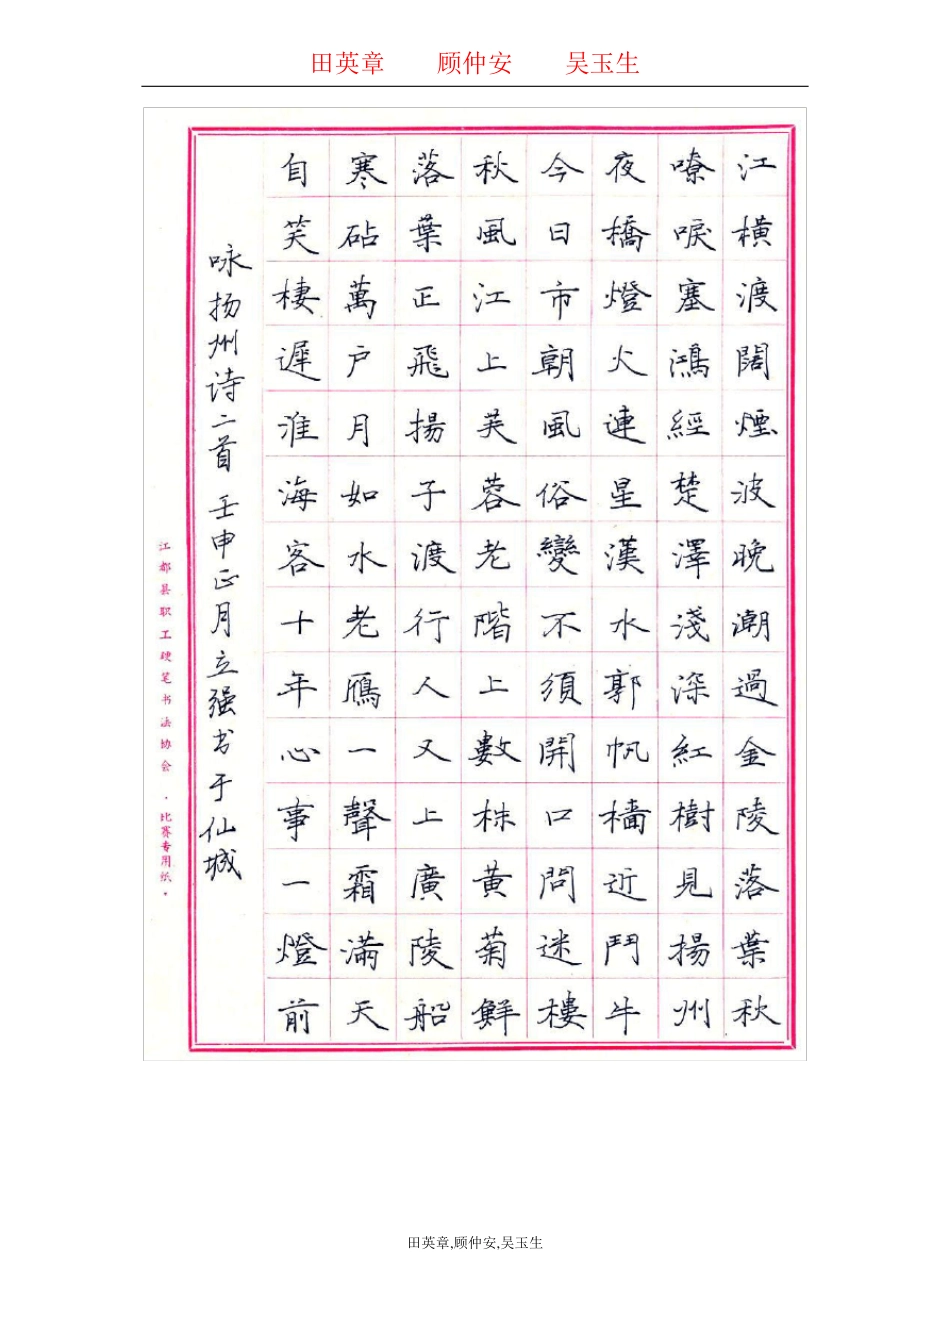 田英章 顾仲安 吴玉生
江橫渡闊煙波晚潮過金陵落葉秋
嘹唳塞鴻經楚澤淺深紅樹見揚州
夜橋燈火連星漢水郭帆檣近鬥牛
今日市朝風俗變不須開口問迷樓
秋風江上芙蓉老階上數株黃菊鮮
落葉正飛揚子渡行人又上廣陵船
寒砧萬户月如水老鴈一聲霜滿天
自笑棲遲淮海客十年心事一燈前
咏扬州诗二首 壬申正月立强书于仙城
江都县职工硬笔书法协会·比赛专用纸·
田英章,顾仲安,吴玉生